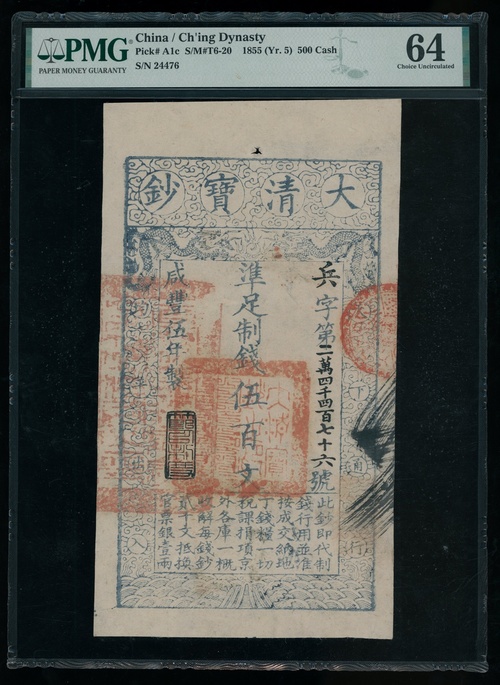 PMG
PAPER MONEY GUARANTY
China / Ch'ing Dynasty
Pick# A1c S/M#T6-20 1855 (Yr. 5) 500 Cash
S/N 24476
64
Choice Uncirculated
大清寶鈔
兵字第二萬四千四百七十六號
準足制錢伍百文
咸豐伍年製
此鈔即代制
錢行用並准
按成交納地
丁錢糧一切
稅課捐項京
外各庫一概
收解每錢鈔
貳千文抵換
官票銀壹兩
天下
行